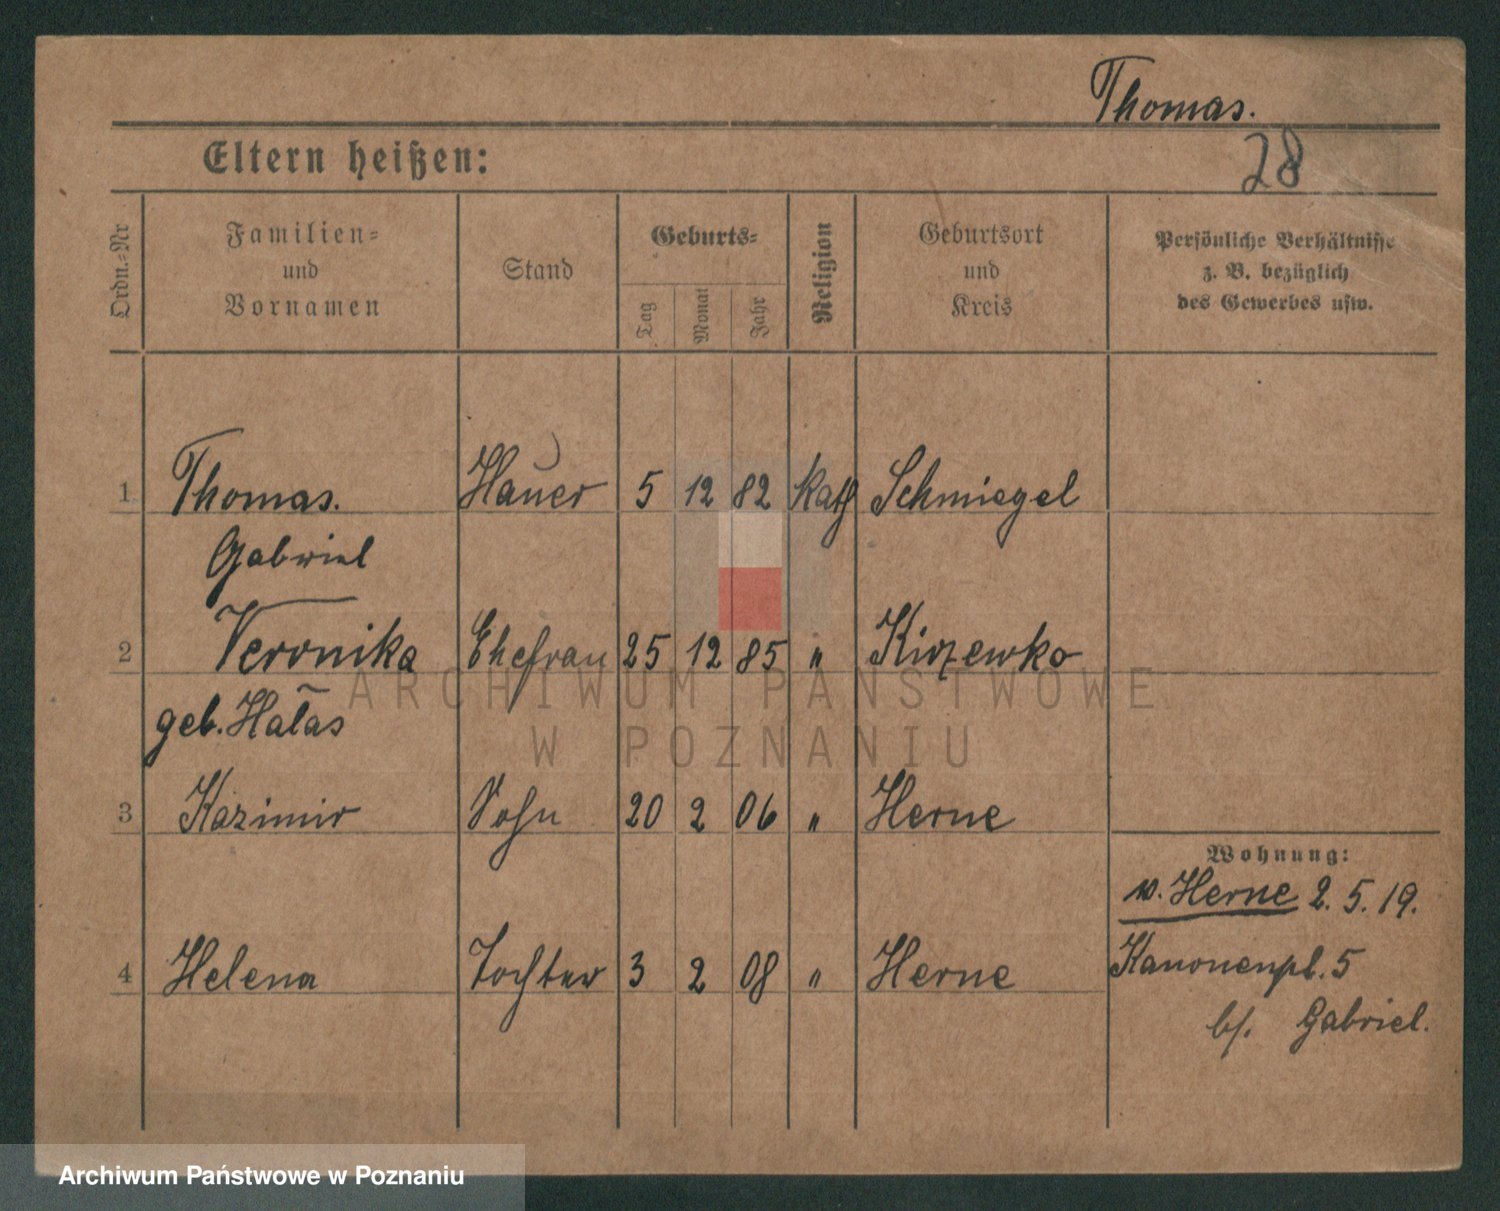 Thomas.
28
Eltern heißen:
Ordn.-Nr
Familien-
und
Vornamen
Stand
Geburts-
Tag
Monat
Jahr
Religion
Geburtsort
und
Kreis
Persönliche Verhältnisse
z. B. bezüglich
des Gewerbes usw.
1 Thomas. Hauer 5 12 82 Kath Schmiegel
Gabriel
2 Veronika Ehefrau 25 12 85 " Kirzewko
geb. Hałas
3 Kazimir Sohn 20 2 06 " Herne
Wohnung:
v. Herne 2. 5. 19.
4 Helena Tochter 3 2 08 " Herne
Kanonenpl. 5
b/. Gabriel.
ARCHIWUM PAŃSTWOWE
W POZNANIU
Archiwum Państwowe w Poznaniu